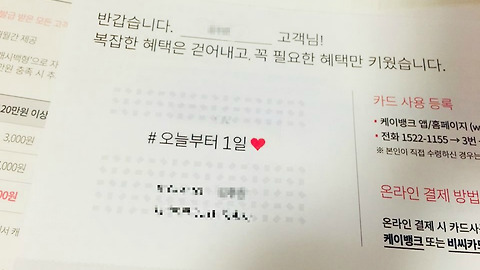 반갑습니다. 고객님!
복잡한 혜택은 걷어내고, 꼭 필요한 혜택만 키웠습니다.
# 오늘부터 1일♥
카드 사용 등록
• 케이뱅크 앱/홈페이지 (w
• 전화 1522-1155 → 3번
※ 본인이 직접 수령하신 경우는
온라인 결제 방법
온라인 결제 시 카드사
케이뱅크 또는 비씨카드
개월간 제공
20만원 이상
3,000원
,000원
00원